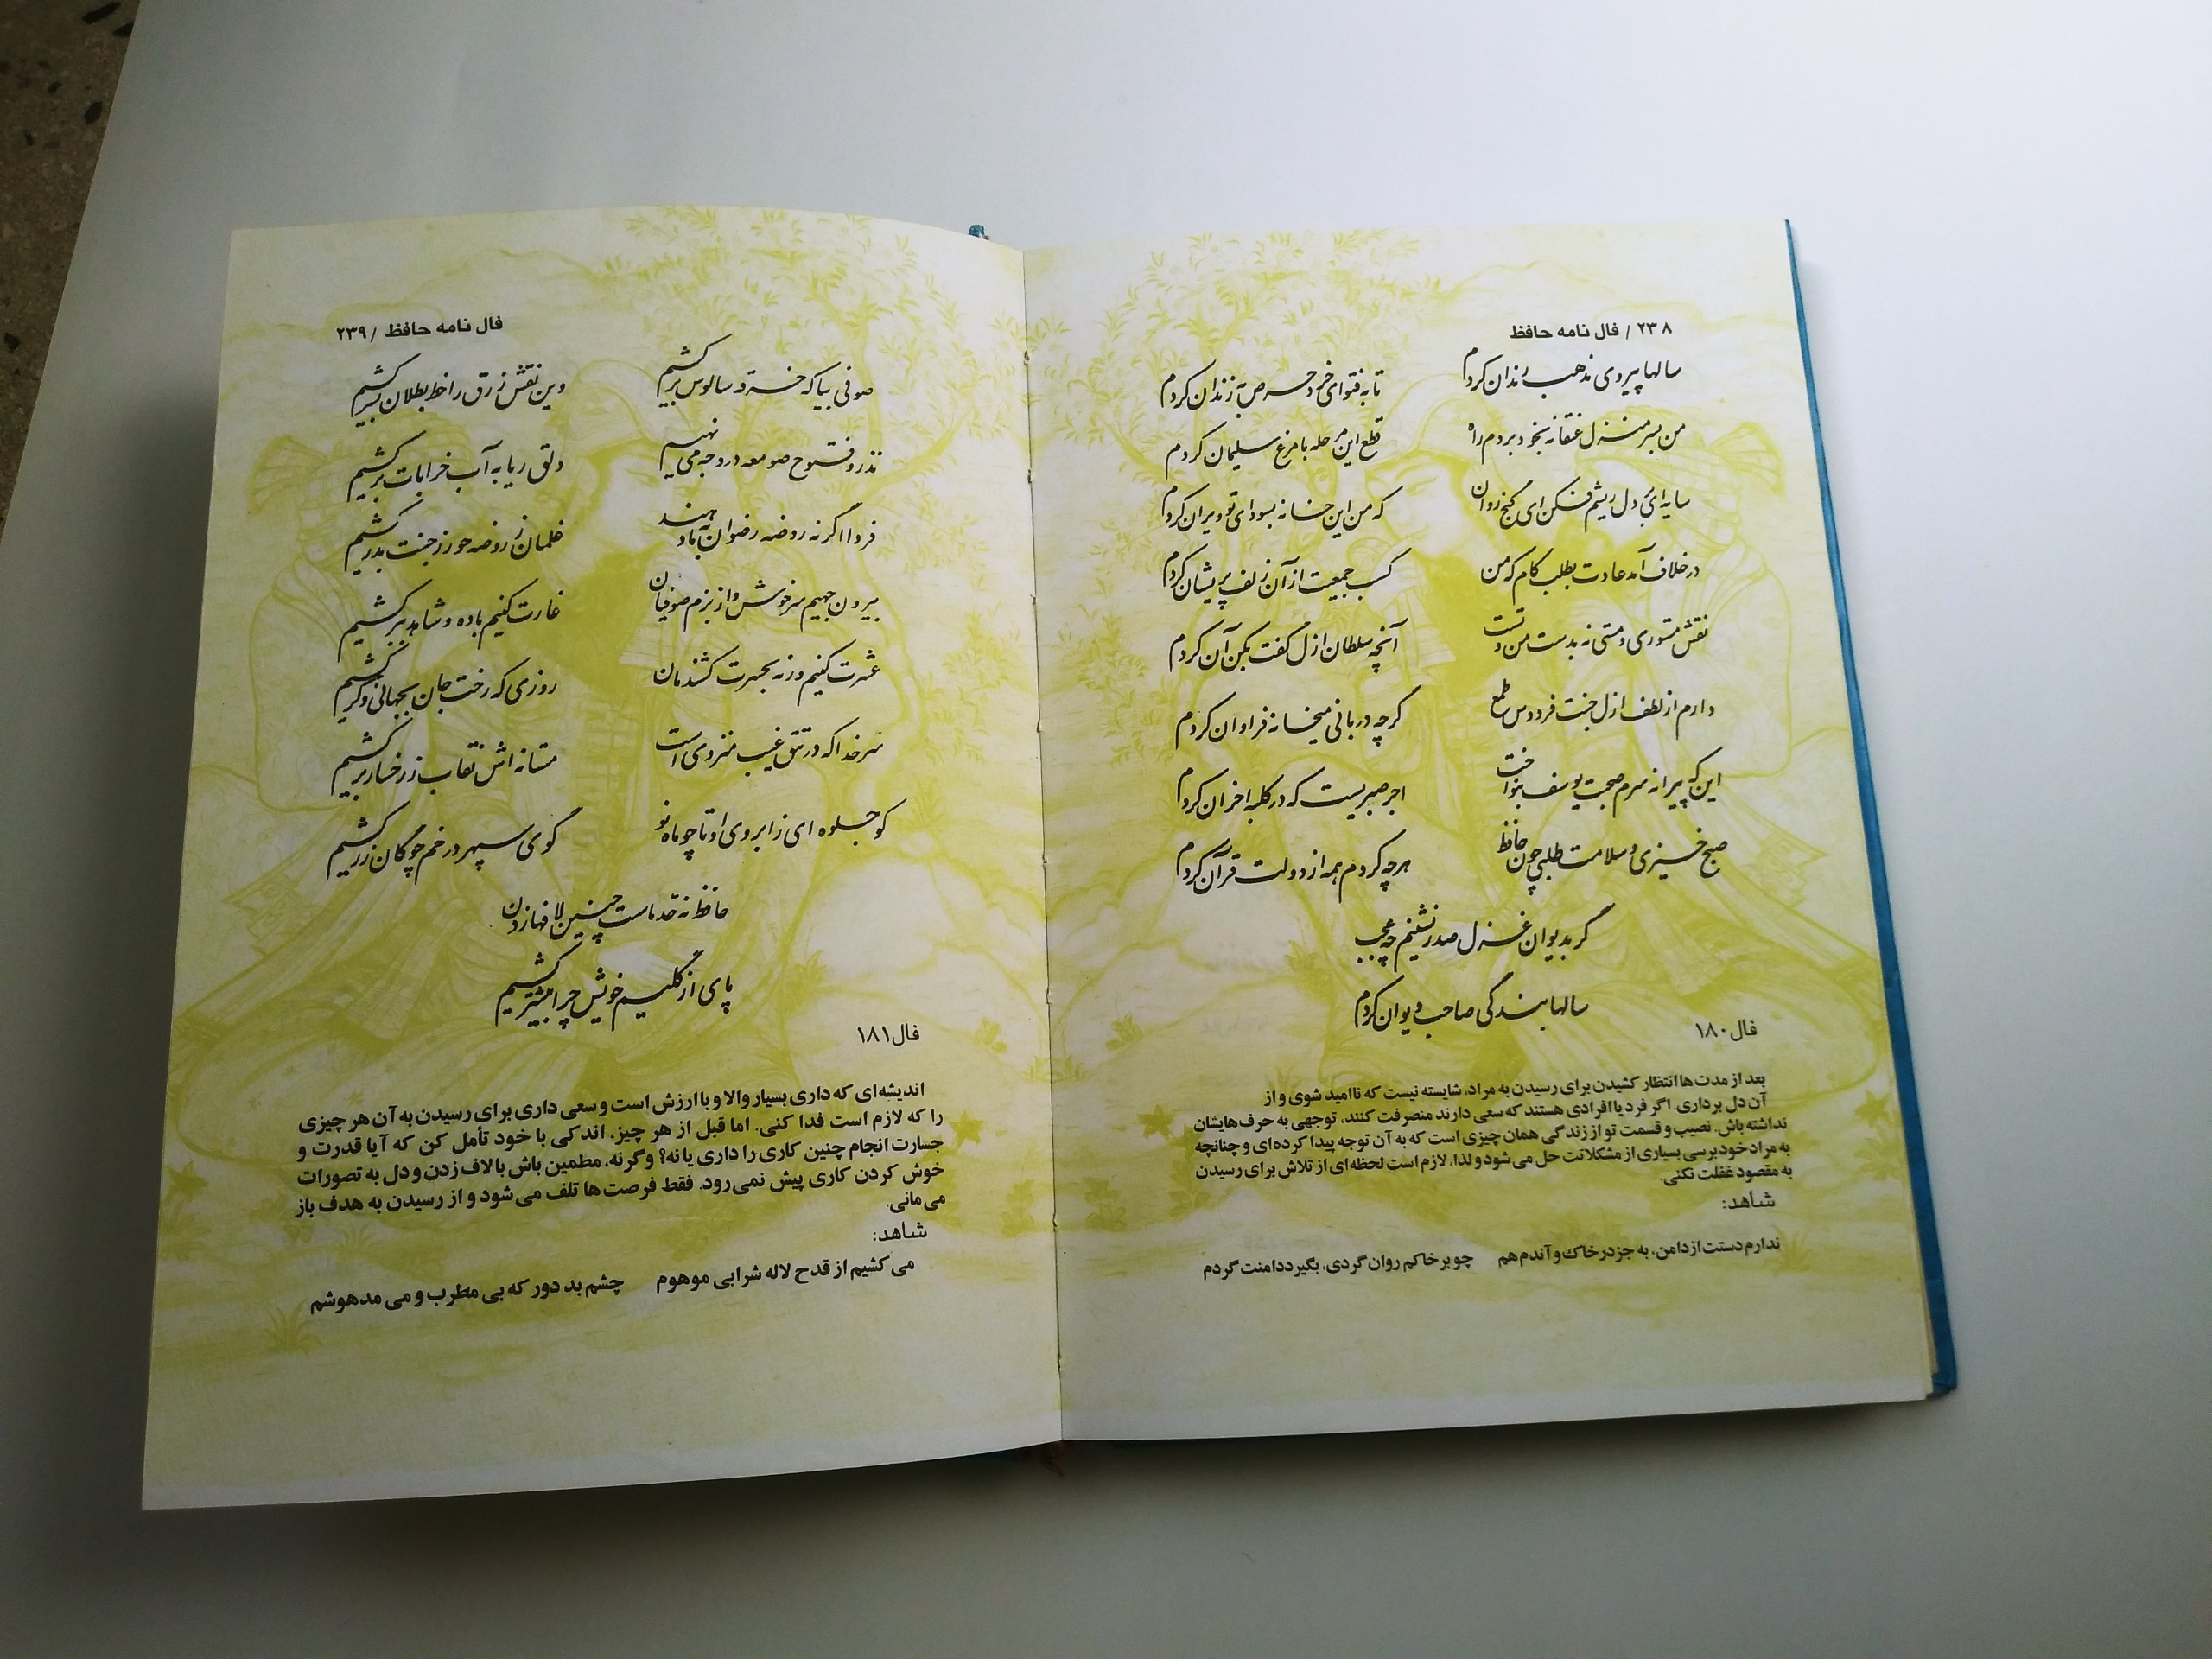 ۲۳۸ / فال نامه حافظ
سالها پیروی مذهب رندان کردم
تا به فتوای خرد حرص به زندان کردم
من بسر منزل عنقا نه بخود بردم راه
قطع این مرحله با مرغ سلیمان کردم
سایه‌ای بر دل ریشم فکن ای گنج روان
که من این خانه بسودای تو ویران کردم
در خلاف آمد عادت بطلب کام که من
کسب جمعیت از آن زلف پریشان کردم
نقش مستوری و مستی نه بدست من و تست
آنچه سلطان ازل گفت بکن آن کردم
دارم از لطف ازل جنت فردوس طمع
گرچه دربانی میخانه فراوان کردم
این که پیرانه سرم صحبت یوسف بنواخت
اجر صبریست که در کلبه احزان کردم
صبح خیزی و سلامت طلبی چون حافظ
هر چه کردم همه از دولت قرآن کردم
گر بدیوان غزل صدر نشینم چه عجب
سالها بندگی صاحب دیوان کردم
فال ۱۸۰
بعد از مدت ها انتظار کشیدن برای رسیدن به مراد، شایسته نیست که ناامید شوی و از
آن دل برداری. اگر فرد یا افرادی هستند که سعی دارند منصرفت کنند، توجهی به حرف هایشان
نداشته باش. نصیب و قسمت تو از زندگی همان چیزی است که به آن توجه پیدا کرده ای و چنانچه
به مراد خود برسی بسیاری از مشکلاتت حل می شود و لذا، لازم است لحظه ای از تلاش برای رسیدن
به مقصود غفلت نکنی.
شاهد:
ندارم دستت از دامن، به جز در خاک و آندم هم
چو بر خاکم روان گردی، بگیرد دامنت گردم
فال نامه حافظ / ۲۳۹
صوفی بیا که خرقه سالوس برکشیم
وین نقش زرق را خط بطلان بسر کشیم
نذر و فتوح صومعه در وجه می نهیم
دلق ریا به آب خرابات بر کشیم
فردا اگر نه روضه رضوان به ما دهند
غلمان ز روضه حور ز جنت بدر کشیم
بیرون جهیم سرخوش و از بزم صوفیان
غارت کنیم باده و شاهد ببر کشیم
عشرت کنیم ورنه بحسرت کشندمان
روزی که رخت جان بجهانی دگر کشیم
سر خدا که در تتق غیب منزوی است
مستانه اش نقاب ز رخسار بر کشیم
کو جلوه ای ز ابروی او تا چو ماه نو
گوی سپهر در خم چوگان زر کشیم
حافظ نه حد ماست چنین لافها زدن
پای از گلیم خویش چرا بیشتر کشیم
فال ۱۸۱
اندیشه ای که داری بسیار والا و با ارزش است و سعی داری برای رسیدن به آن هر چیزی
را که لازم است فدا کنی. اما قبل از هر چیز، اندکی با خود تأمل کن که آیا قدرت و
جسارت انجام چنین کاری را داری یا نه؟ وگرنه، مطمین باش با لاف زدن و دل به تصورات
خوش کردن کاری پیش نمی رود. فقط فرصت ها تلف می شود و از رسیدن به هدف باز
می مانی.
شاهد:
می کشیم از قدح لاله شرابی موهوم
چشم بد دور که بی مطرب و می مدهوشم